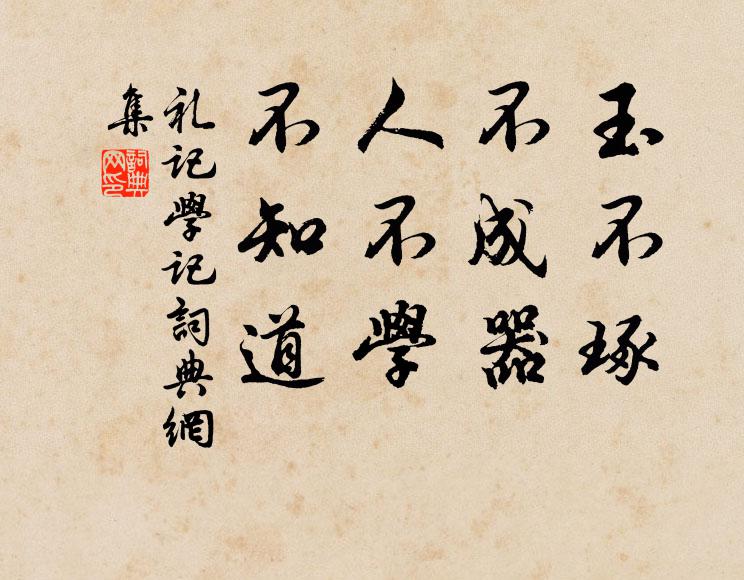 玉不琢
不成器
人不學
不知道
礼記學記詞典網
集
詞典網印